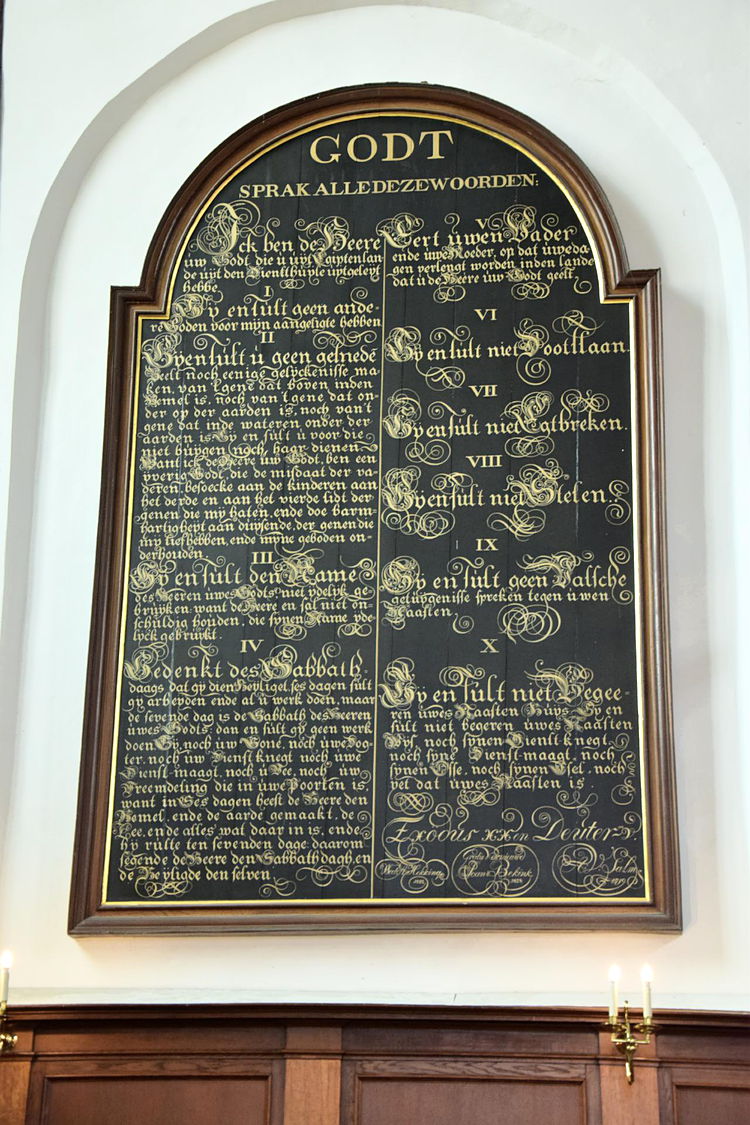 GODT
SPRAK ALLE DEZE WOORDEN:
Ick ben de Heere
uw Godt, die ù uyt Egiptenlan
de uyt den Diensthuyse uytgeleyt
hebbe
I
Gy en sult geen ande-
re Goden voor mijn aangesigte hebben.
II
Gy en sult ù geen gesnede
Beelt noch eenige gelyckenisse ma-
ken, van 't gene dat boven inden
Hemel is, noch van 't gene dat on-
der op der aarden is, noch van 't
gene dat inde wateren onder der
aarden is. Gy en sult ù voor die
niet buygen noch haar dienen:
Want ick de Heere uw Godt, ben een
yverig Godt, die de misdaat der va-
deren besoecke aan de kinderen aan
het derde en aan het vierde lidt der
genen die my haten, ende doe barm
hartigheyt aan duysende, der genen die
my liefhebben, ende myne geboden on-
derhouden.
III
Gy en sult den Name
des Heeren uwes Godts niet ydelyk ge-
bruyken, want de Heere en sal niet on-
schuldig houden, die synen Name yde-
lyck gebruykt.
IV
Gedenkt des Sabbath-
daags, dat gy dien Heyliget, ses dagen sult
gy arbeyden ende al ù werk doen, maar
de sevende dag is de Sabbath des Heeren
uwes Godts, dan en sult gy geen werk
doen, Gy, noch uw Sone, noch uw Dog-
ter, noch uw Dienst knegt, noch uwe
Dienst maagt, noch ù Vee, noch uw
Vreemdeling die in uwe Porten is,
want in ses dagen heeft de Heere den
Hemel, ende de aarde gemaakt, de
Zee, ende alles wat daar in is, ende
Hy rùste ten sevenden dage daarom
segende de Heere den Sabbathdagh, en
de Heyligde den selven.
V
Eert ùwen Vader
ende uwe Moeder, op dat uwe da-
gen verlengt worden in den lande
dat ù de Heere ùw Godt geeft.
VI
Gy en sult niet Dootslaan.
VII
Gy en sult niet Egtbreken.
VIII
Gy en sult niet Stelen.
IX
Gy en sult geen Valsche
getuygenisse spreken tegen ù wen
Naasten.
X
Gy en sult niet Begee-
ren ùwes Naasten Huys, Gy en
sult niet begeren ùwes Naasten
Wyf, noch synen Dienst knegt,
noch syne Dienst maagt, noch
synen Osse, noch synen Esel, noch
yet dat ùwes Naasten is.
Exodus XX en Deuter V.